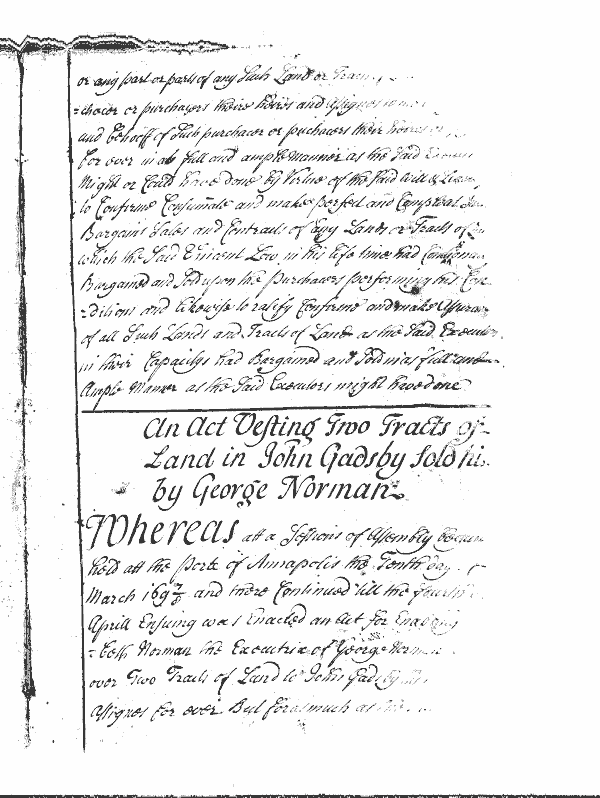 or any part or parts of any Such Land or Tract
=chacer or purchasers theire heires and assignes
and behooff of such purchacer or puchacers their heires or
for ever in as full and ample manner as the said Execut
Might or Could have done by Virtue of the said will &
to Confirme Consumate and make perfect and Compleat
Bargains Sales and Contracts of any Lands or Tracts of
which the Said Vincent Low in his life time had
Bargained and Sold upon the purchasers performing his Con
=ditions and likewise to ratify Confirme and make Assura
of all Such Lands and Tracts of Land as the Said Executors
in their Capacitys had Bargained and Sold in as full and
Ample Manner as the Said Executors might have done
An Act Vesting Two Tracts of
Land in John Gadsby Sold hi
by George Norman
Whereas att a Sessions of Assembly begun
held att the Porte of Annapolis the Tenth day
March 169 7/8 and there Continued till the fourth
Aprill Ensuing was Enacted an Act for Enabling
Norman the Executrix of George Norman
over Two Tracts of Land to John Gadsby
Assignes for ever But forasmuch as